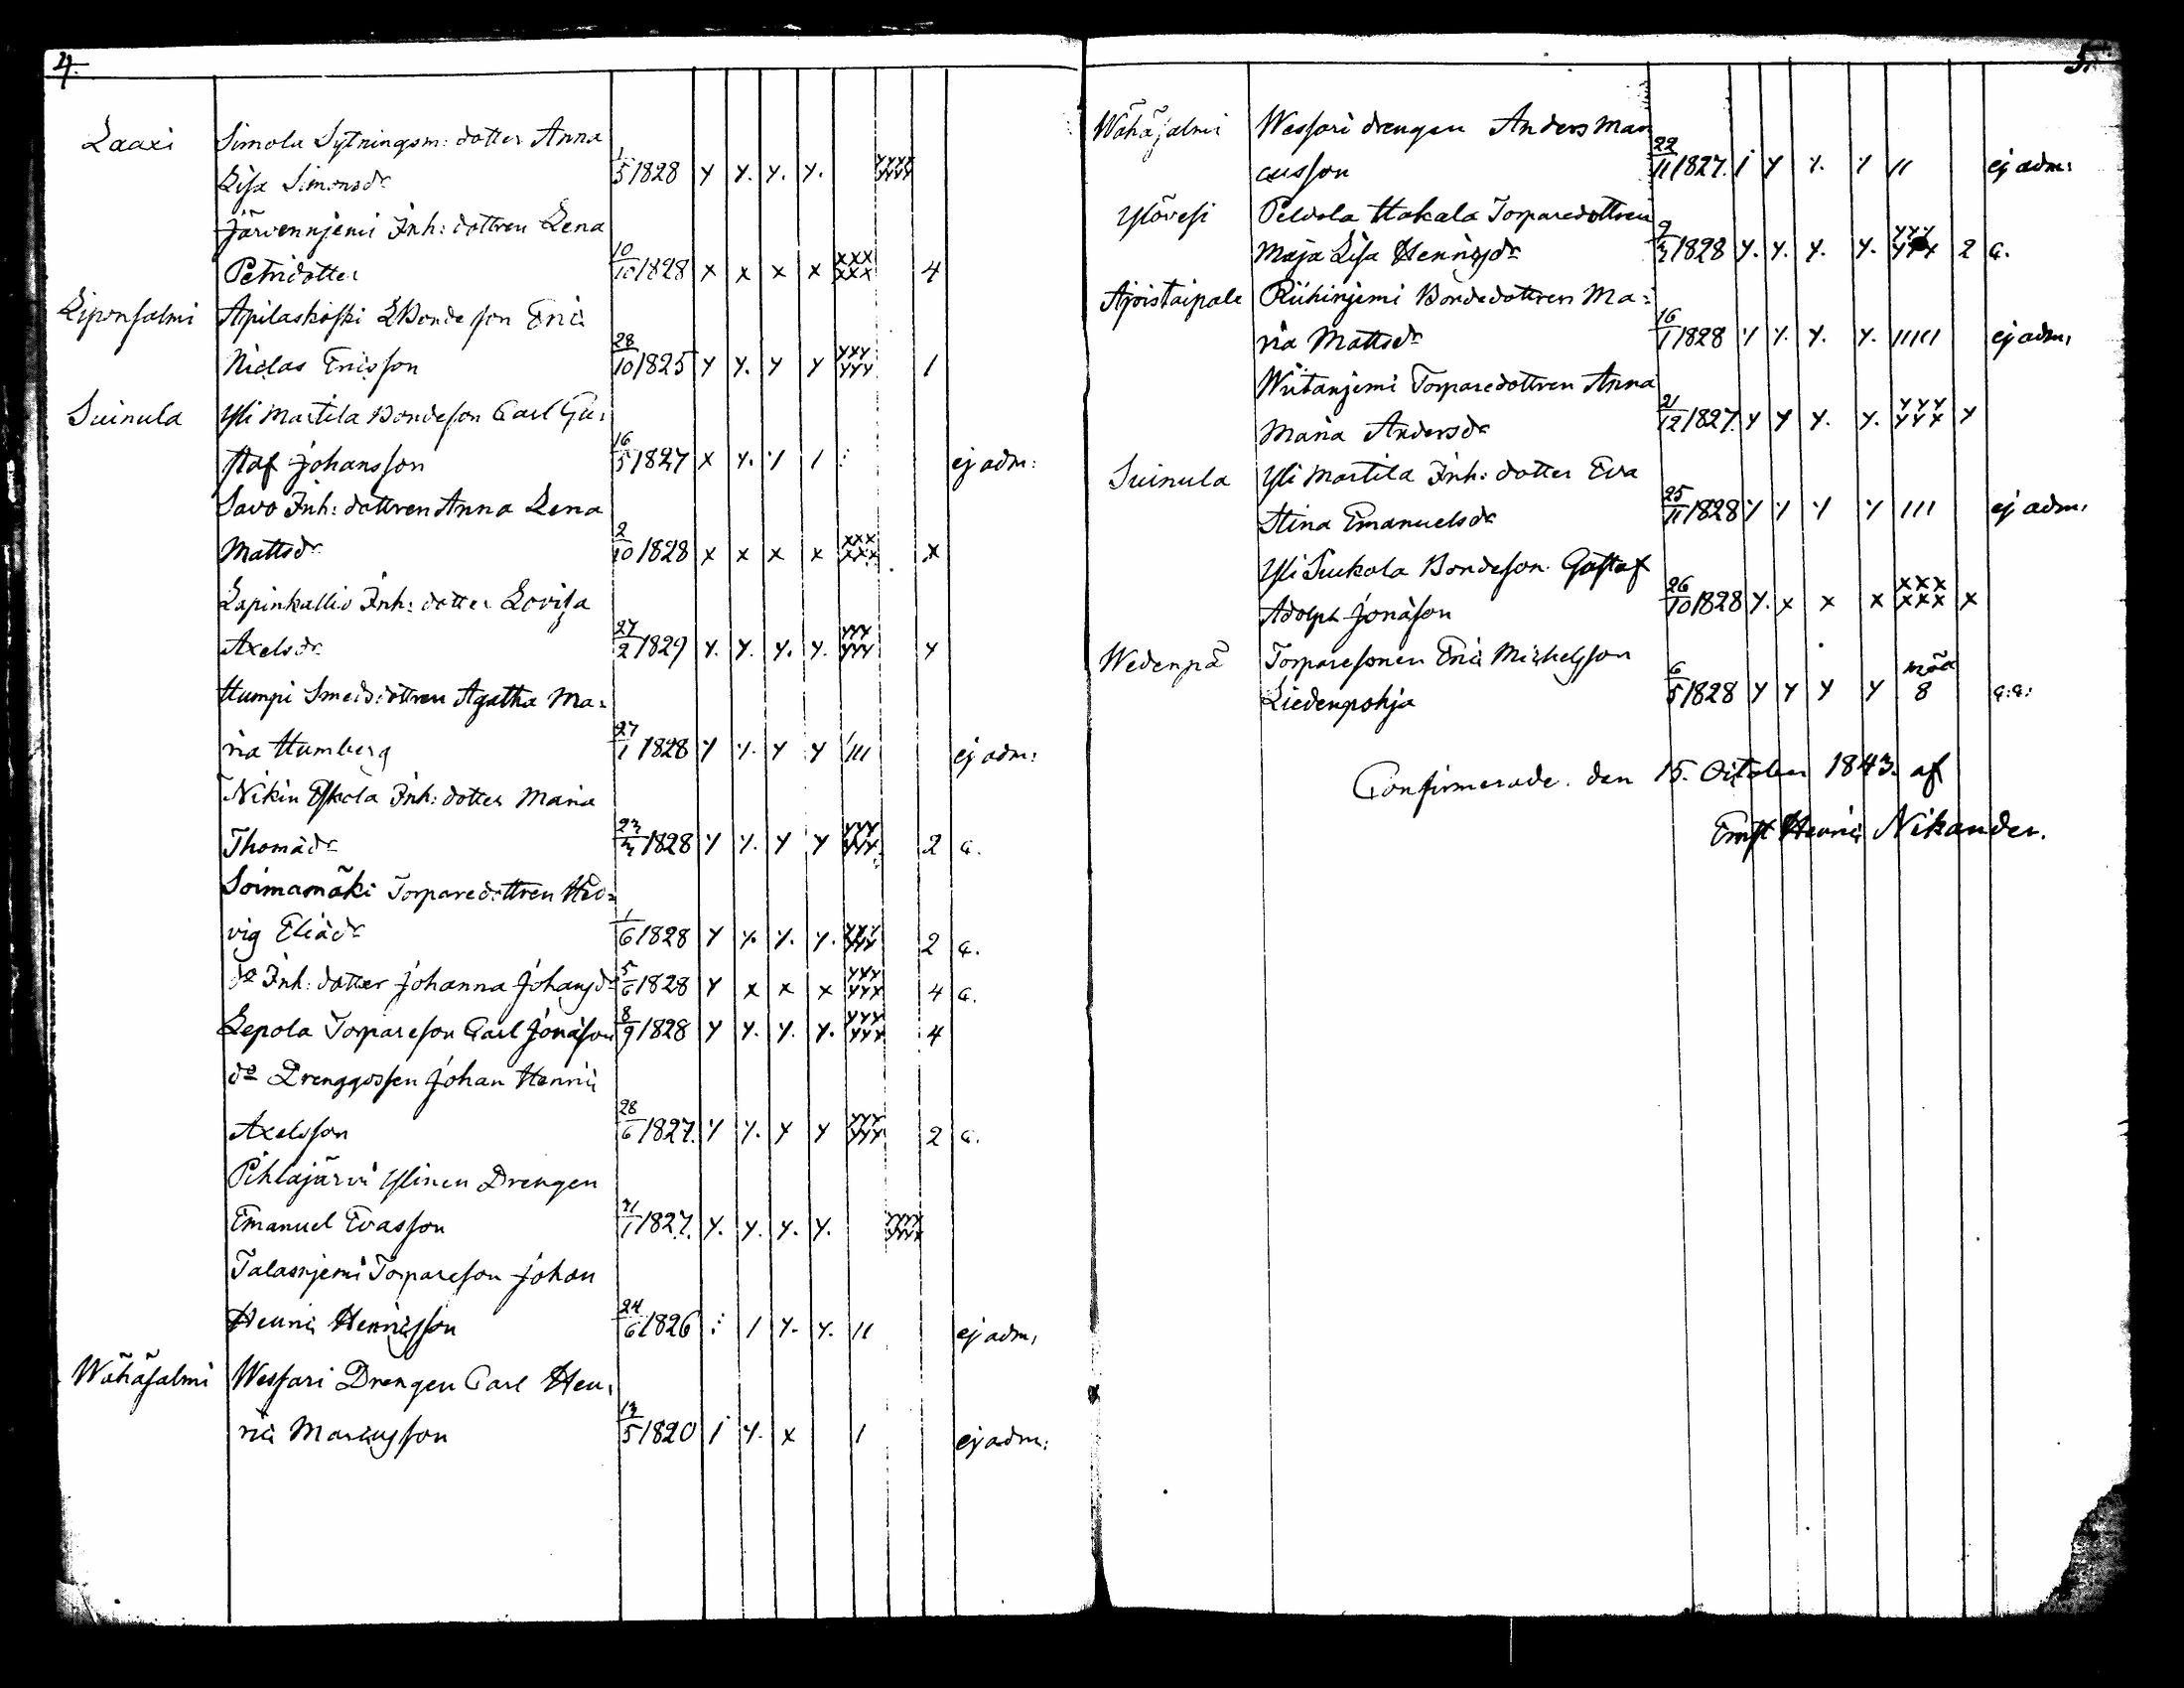 4.
Laaxi Simola Sytningsm: dotter Anna
Lisa Simonsdr 1/5 1828 y y. y. y. yyyy yyyy
Järvennjemi Inh: dottren Lena
Petridotter 10/10 1828 x x x x xxx xxx 4
Liponsalmi Apilaskoski LBondeson Eric
Niclas Ericsson 28/10 1825 y y. y y yyy yyy 1
Suinula Yli Martila Bondeson Carl Gu:
staf Johansson 16/5 1827 x y. y 1 : ej adm:
Savo Inh: dottren Anna Lena
Mattsdr 2/10 1828 x x x x xxx xxx x
Lapinkallio Inh: dotter Lovisa
Axelsdr 27/2 1829 y. y. y. y. yyy yyy y
Humpi Smeds: dottren Agatha Ma:
ria Humberg 27/1 1828 y y. y y 1111 ej adm:
Nikin Eskola Inh: dotter Maria
Thomädr 23/3 1828 y y. y y yyy yyy 2 a.
Soimamäki Torparedottren Hed=
vig Eliädr 1/6 1828 y y. y. y. yyy yyy 2 a.
do Inh: dotter Johanna Johansdr 5/6 1828 y x x x yyy yyy 4 a.
Lepola Torpareson Carl Jonäson 8/9 1828 y y. y. y. yyy yyy 4
do Drenggossen Johan Henric
Axelsson 28/6 1827. y y. y y yyy yyy 2 a.
Pihlajärvi Ylinen Drengen
Emanuel Evasson 31/1 1827. y. y. y. y. yyyy yyyy
Talasnjemi Torpareson Johan
Henric Henricsson 24/6 1826 : 1 y. y. 11 ej adm,
Wähäsalmi Wessari Drengen Carl Hen:
ric Marcusson 13/5 1820 1 y. x 1 ej adm:
5.
Wähäsalmi Wessari drengen Anders Mar
cusson 22/11 1827. 1 y y. y 11 ej adm:
Ylövesi Peldola Hakala Torparedottren
Maja Lisa Henricsdr 9/3 1828 y. y. y. y. yyy yyx 2 a.
Ajoistaipale Riihinjemi Bondedottren Ma:
ria Mattsdr 16/1 1828 y y. y. y. 11111 ej adm,
Wiitanjemi Torparedottren Anna
Maria Andersdr 21/12 1827. y y y. y. yyy yyx y
Suinula Yli Martila Inh: dotter Eva
Stina Emanuelsdr 25/11 1828 y y y y 111 ej adm,
Yli Suckola Bondeson Gustaf
Adolph Jonäson 26/10 1828 y. x x x xxx xxx x
Wedenpä Torparesonen Eric Michelsson
Liedenpohja 6/5 1828 y y y y 8 a:a:
Confirmerade den 15. October 1843. af
Ernst Henric Nikander.